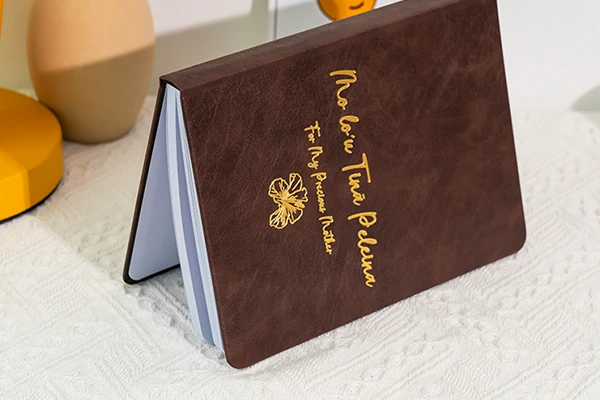 Mo lo'u Tinā Peleina
For My Precious Mother